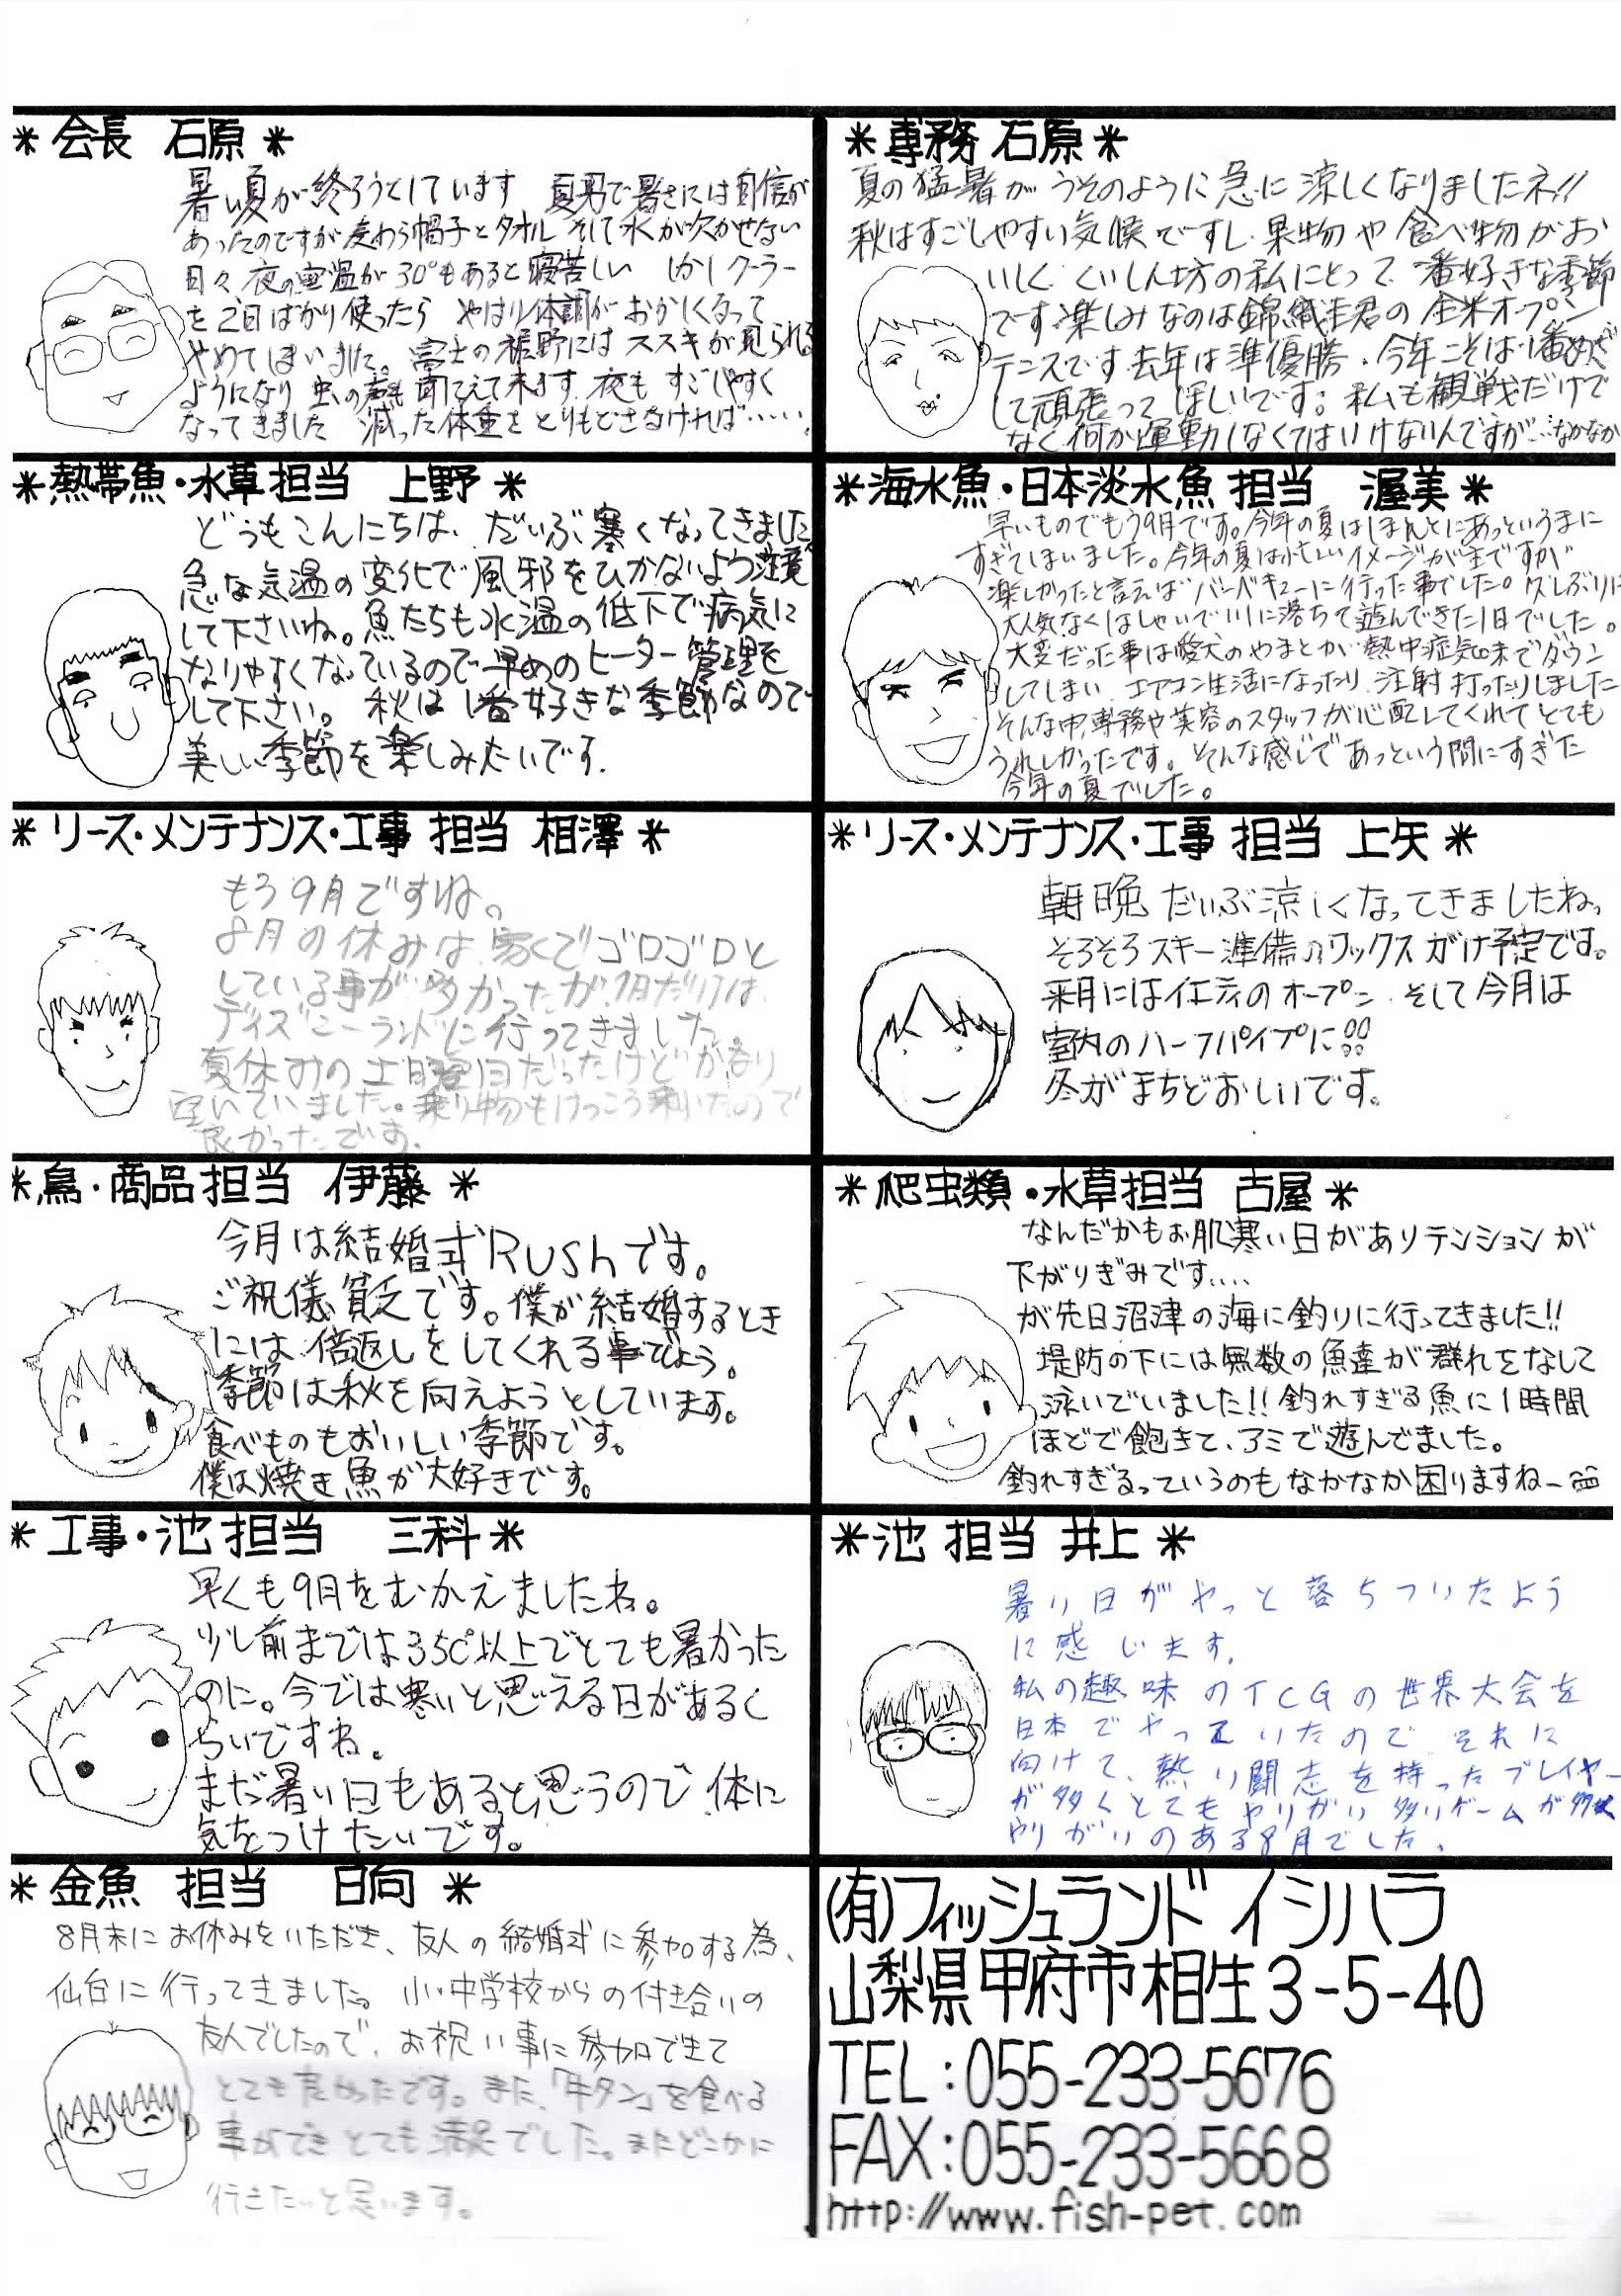 ＊会長 石原＊
暑い夏が終ろうとしています 夏男で暑さには自信が
あったのですが麦わら帽子とタオル そして水が欠かせない
日々 夜の室温が30°もあると寝苦しい しかしクーラー
を2日ばかり使ったら やはり体調がおかしくなって
やめてしまいました。富士の裾野にはススキが見られる
ようになり 虫の声も聞こえて来ます 夜もすごしやすく
なってきました 減った体重をとりもどさなければ……
＊専務 石原＊
夏の猛暑がうそのように急に涼しくなりましたネ!!
秋はすごしやすい気候ですし、果物や食べ物がお
いしく、くいしん坊の私にとって一番好きな季節
です。楽しみなのは錦織圭君の全米オープン
テニスです 去年は準優勝、今年こそは1番めざ
して頑張ってほしいです。私も観戦だけで
なく何か運動しなくてはいけないんですが…なかなか
＊熱帯魚・水草担当 上野＊
どうもこんにちは、だいぶ寒くなってきました
急な気温の変化で風邪をひかないよう注意
して下さいね。魚たちも水温の低下で病気に
なりやすくなっているので早めのヒーター管理を
して下さい。秋は1番好きな季節なので
美しい季節を楽しみたいです.
＊海水魚・日本淡水魚 担当 渥美＊
早いものでもう9月です。今年の夏はほんとにあっというまに
すぎてしまいました。今年の夏は忙しいイメージが主ですが
楽しかったと言えばバーベキューに行った事でした。久しぶりに
大人気なくはしゃいで川に落ちて遊んできた1日でした。
大変だった事は愛犬のやまとが熱中症気味でダウン
してしまい エアコン生活になったり、注射打ったりしました
そんな中、専務や美容のスタッフが心配してくれてとても
うれしかったです。そんな感じであっという間にすぎた
今年の夏でした。
＊リース・メンテナンス・工事 担当 相澤＊
もう9月ですね。
8月の休みは家でゴロゴロと
している事が多かったが、1日だけは、
ディズニーランドに行ってきました。
夏休みの土曜日だったけどかなり
空いていました。乗り物もけっこう乗れたので
良かったです.
＊リース・メンテナンス・工事 担当 上矢＊
朝晩だいぶ涼しくなってきましたね。
そろそろスキー準備のワックスがけ予定です。
来月にはイエティのオープン、そして今月は
室内のハーフパイプに!!
冬がまちどおしいです。
＊鳥・商品担当 伊藤＊
今月は結婚式Rushです。
ご祝儀貧乏です。僕が結婚するとき
には倍返しをしてくれる事でしょう。
季節は秋を向えようとしています。
食べものもおいしい季節です。
僕は焼き魚が大好きです。
＊爬虫類・水草担当 古屋＊
なんだかもお肌寒い日がありテンションが
下がりぎみです....
が先日沼津の海に釣りに行ってきました!!
堤防の下には無数の魚達が群れをなして
泳いでいました!! 釣れすぎる魚に1時間
ほどで飽きて、アミで遊んでました。
釣れすぎるっていうのもなかなか困りますねー
＊工事・池担当 三科＊
早くも9月をむかえましたね。
少し前までは35℃以上でとても暑かった
のに。今では寒いと思える日があるく
らいですね。
まだ暑い日もあると思うので体に
気をつけたいです。
＊池 担当 井上＊
暑い日がやっと落ちついたよう
に感じます.
私の趣味のTCGの世界大会を
日本でやっていたので それに
向けて、熱い闘志を持ったプレイヤー
が多くとてもやりがい多いゲームが多く
やりがいのある8月でした.
＊金魚 担当 日向＊
8月末にお休みをいただき、友人の結婚式に参加する為、
仙台に行ってきました。小・中学校からの付き合いの
友人でしたので、お祝い事に参加できて
とても良かったです。また、「牛タン」を食べる
事ができとても満足でした。またどこかに
行きたいと思います。
(有)フィッシュランド イシハラ
山梨県甲府市相生3-5-40
TEL:055-233-5676
FAX:055-233-5668
http://www.fish-pet.com